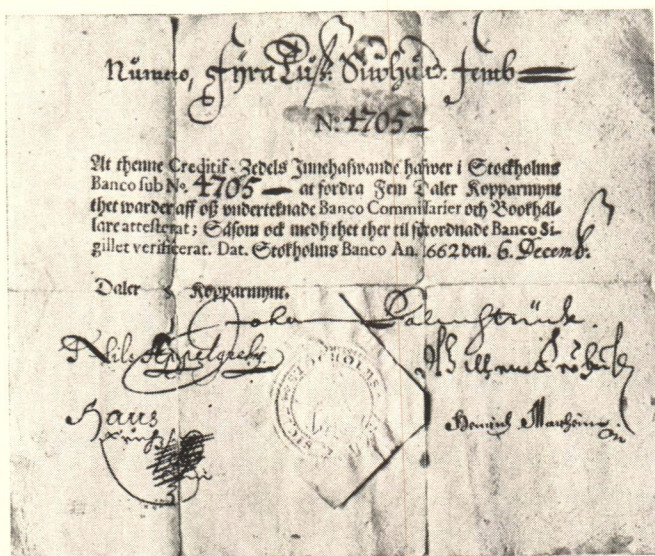 Numero, Fyra Tuß. Siwhund. Femb
No: 4705
At thenne Creditif-Zedels Innehafwande hafwer i Stockholms
Banco sub No. 4705 at fordra Fem Daler Kopparmynt
thet warder aff oß vnderteknade Banco Commissarier och Bookhål-
lare attesterat; Såsom ock medh thet ther til förordnade Banco Si-
gillet verificerat. Dat. Stokholms Banco An. 1662 den. 6. Decemb.
Daler 5 Kopparmynt.
Johan Palmstruck.
Nils Appelgreby
Hans